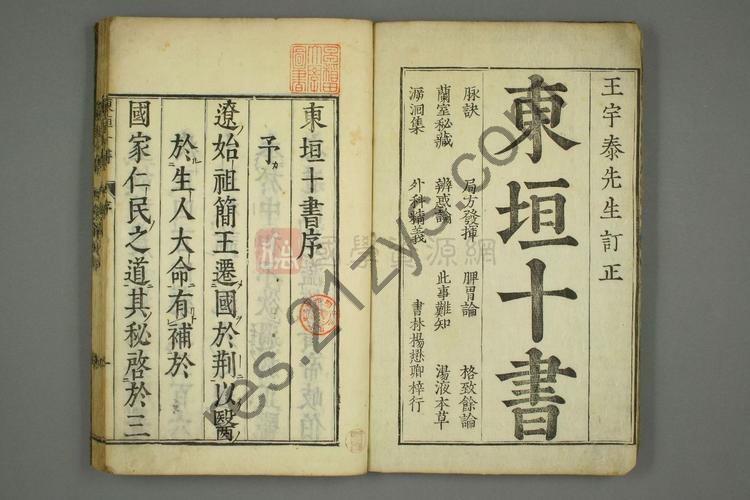 王宇泰先生訂正
東垣十書
脉訣 局方發揮 脾胃論 格致餘論
蘭室秘藏 辨惑論 此事難知 湯液本草
溯洄集 外科精義 書林楊懋卿梓行
東垣十書序
予カ
遼始祖簡王遷國於荆以醫
於生人大命有補於
國家仁民之道其秘啓於三
國學資源網
res.21zys.com